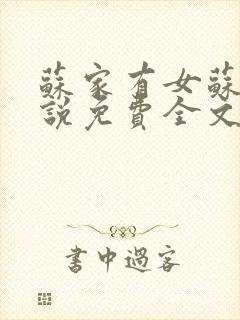 蘇家有女蘇
說免費全文
書中過客